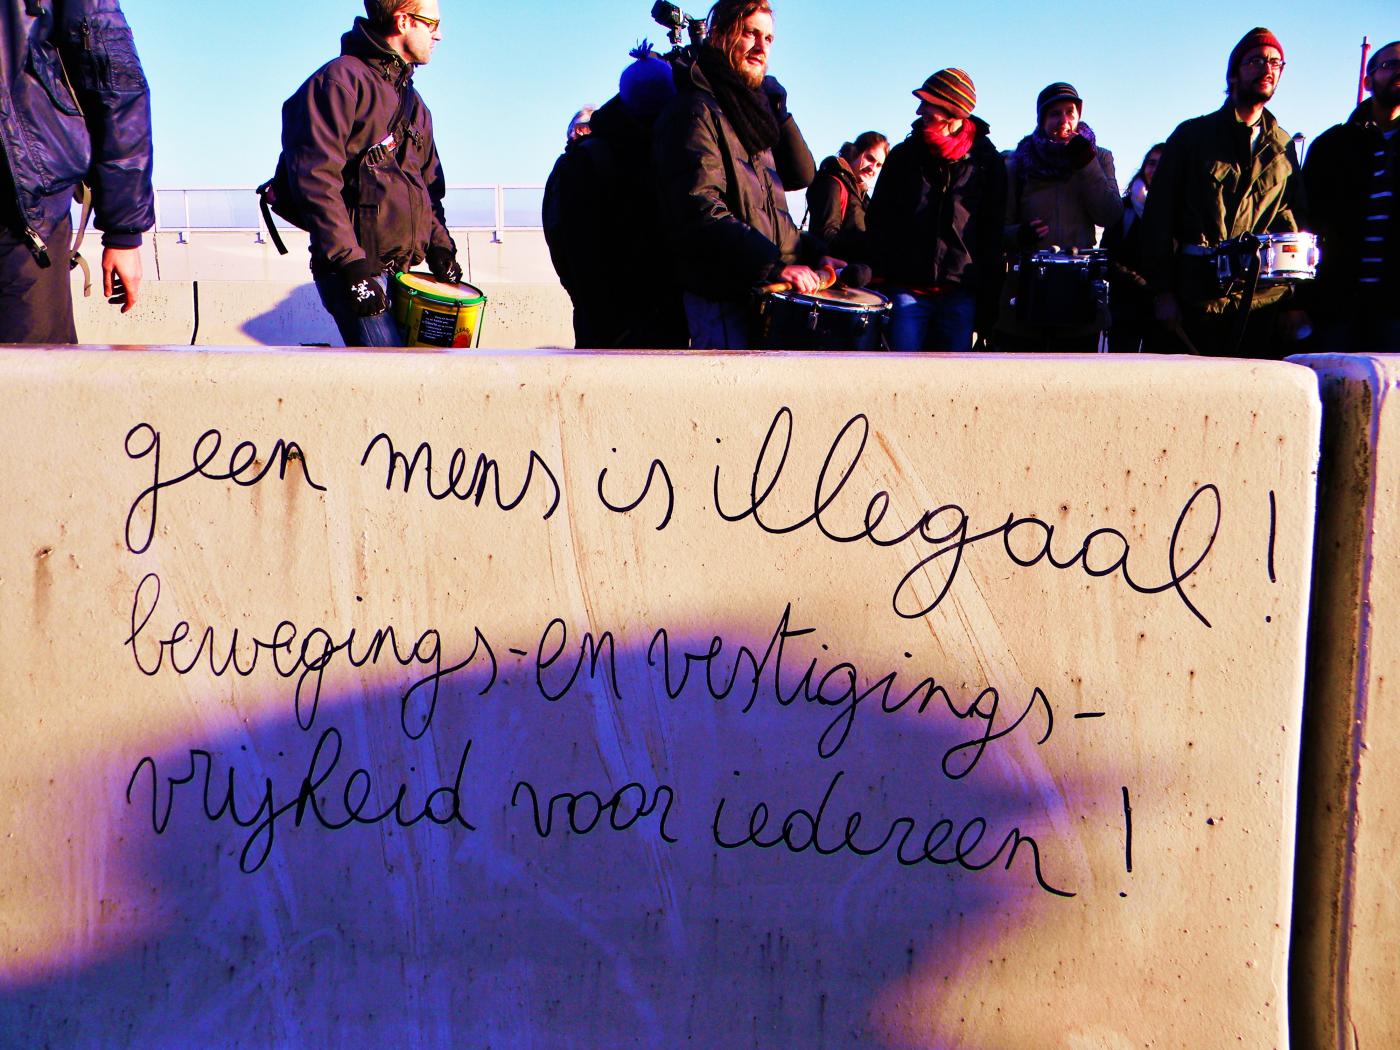 geen mens is illegaal!
bewegings-en vestigings-
vrijheid voor iedereen!